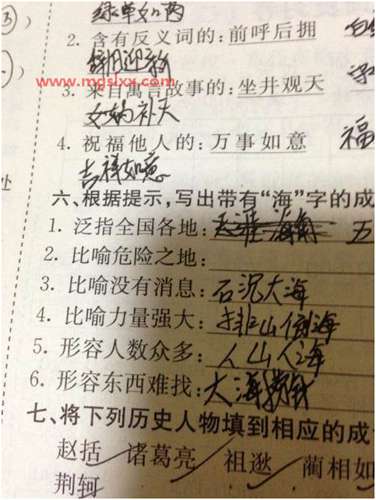 绿草如茵
2. 含有反义词的:前呼后拥
辞旧迎新
www.mdslxx.com
3. 来自寓言故事的:坐井观天
女娲补天
4. 祝福他人的:万事如意 福
吉祥如意
处
六、根据提示,写出带有“海”字的成
1. 泛指全国各地:天涯海角 五
2. 比喻危险之地:
3. 比喻没有消息:石沉大海
4. 比喻力量强大:排山倒海
5. 形容人数众多:人山人海
6. 形容东西难找:大海捞针
七、将下列历史人物填到相应的成
赵括 诸葛亮 祖逖 蔺相如
荆轲